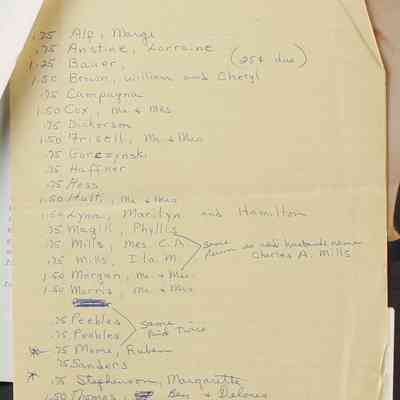 .75 Alf, Marge
.75 Anstine, Lorraine
1.25 Bauer, (25¢ due)
1.50 Brown, William and Cheryl
.75 Campagna
1.50 Cox, Mr. & Mrs.
.75 Dickerson
1.50 Frisell, Mr. & Mrs.
.75 Gorezynski
.75 Haffner
.75 Hess
1.50 Hults, Mr. & Mrs.
1.50 Lynn, Marilyn and Hamilton
.75 Magill, Phyllis
.75 Mills, Mrs. C. A.
.75 Mills, Ila M.
same person as said husbands name
Charles A. Mills
1.50 Morgan, Mr. & Mrs.
1.50 Morris, Mr. & Mrs.
.75 Peebles
.75 Peebles
same
Paid Twice
* .75 Moore, Ruben
.75 Sanders
* .75 Stephenson, Margarette
1.50 Thomas, Ben & Delores